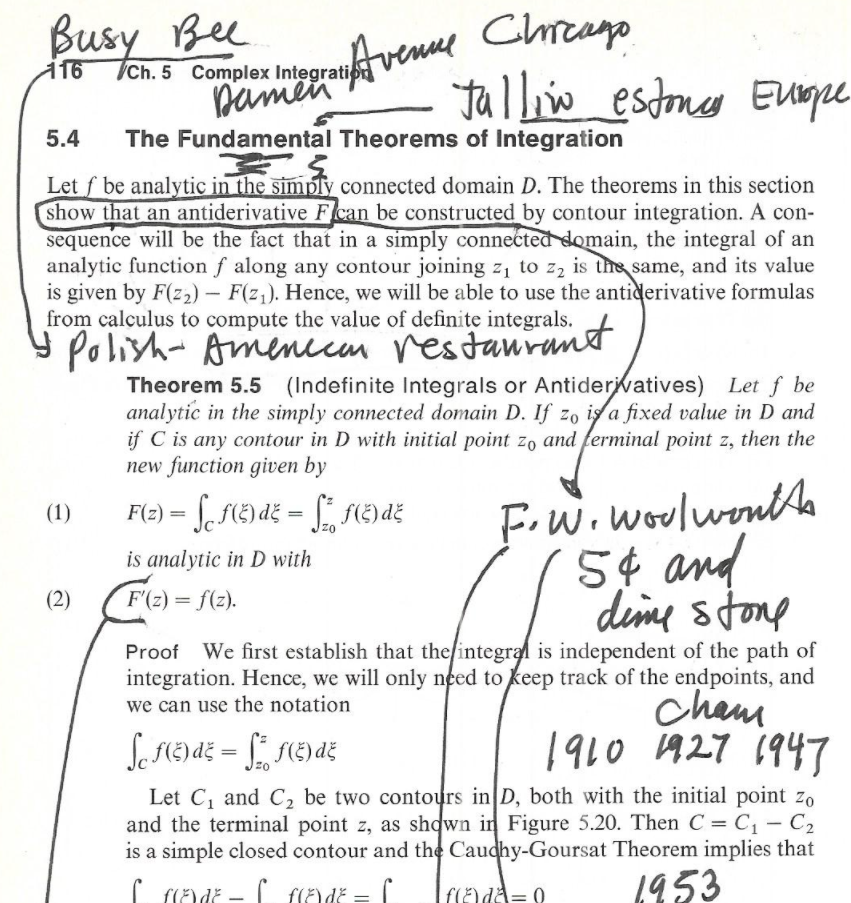 Busy Bee
Avenue Chicago
116 Ch. 5 Complex Integration
Damen
Tallin estonea Europe
5.4 The Fundamental Theorems of Integration
Let f be analytic in the simply connected domain D. The theorems in this section
show that an antiderivative F can be constructed by contour integration. A con-
sequence will be the fact that in a simply connected domain, the integral of an
analytic function f along any contour joining z₁ to z₂ is the same, and its value
is given by F(z₂) − F(z₁). Hence, we will be able to use the antiderivative formulas
from calculus to compute the value of definite integrals.
Polish-American restaurant
Theorem 5.5 (Indefinite Integrals or Antiderivatives) Let f be
analytic in the simply connected domain D. If z₀ is a fixed value in D and
if C is any contour in D with initial point z₀ and terminal point z, then the
new function given by
(1) F(z) = ∫_C f(ξ) dξ = ∫_{z₀}^{z} f(ξ) dξ
F. W. Woolworth
is analytic in D with
5¢ and
(2) F′(z) = f(z).
dime store
Proof We first establish that the integral is independent of the path of
integration. Hence, we will only need to keep track of the endpoints, and
we can use the notation
∫_C f(ξ) dξ = ∫_{z₀}^{z} f(ξ) dξ
1910 1927 1947
Let C₁ and C₂ be two contours in D, both with the initial point z₀
and the terminal point z, as shown in Figure 5.20. Then C = C₁ − C₂
is a simple closed contour and the Cauchy-Goursat Theorem implies that
∫ f(ξ) dξ − ∫ f(ξ) dξ = ∫ f(ξ) dξ = 0
1953